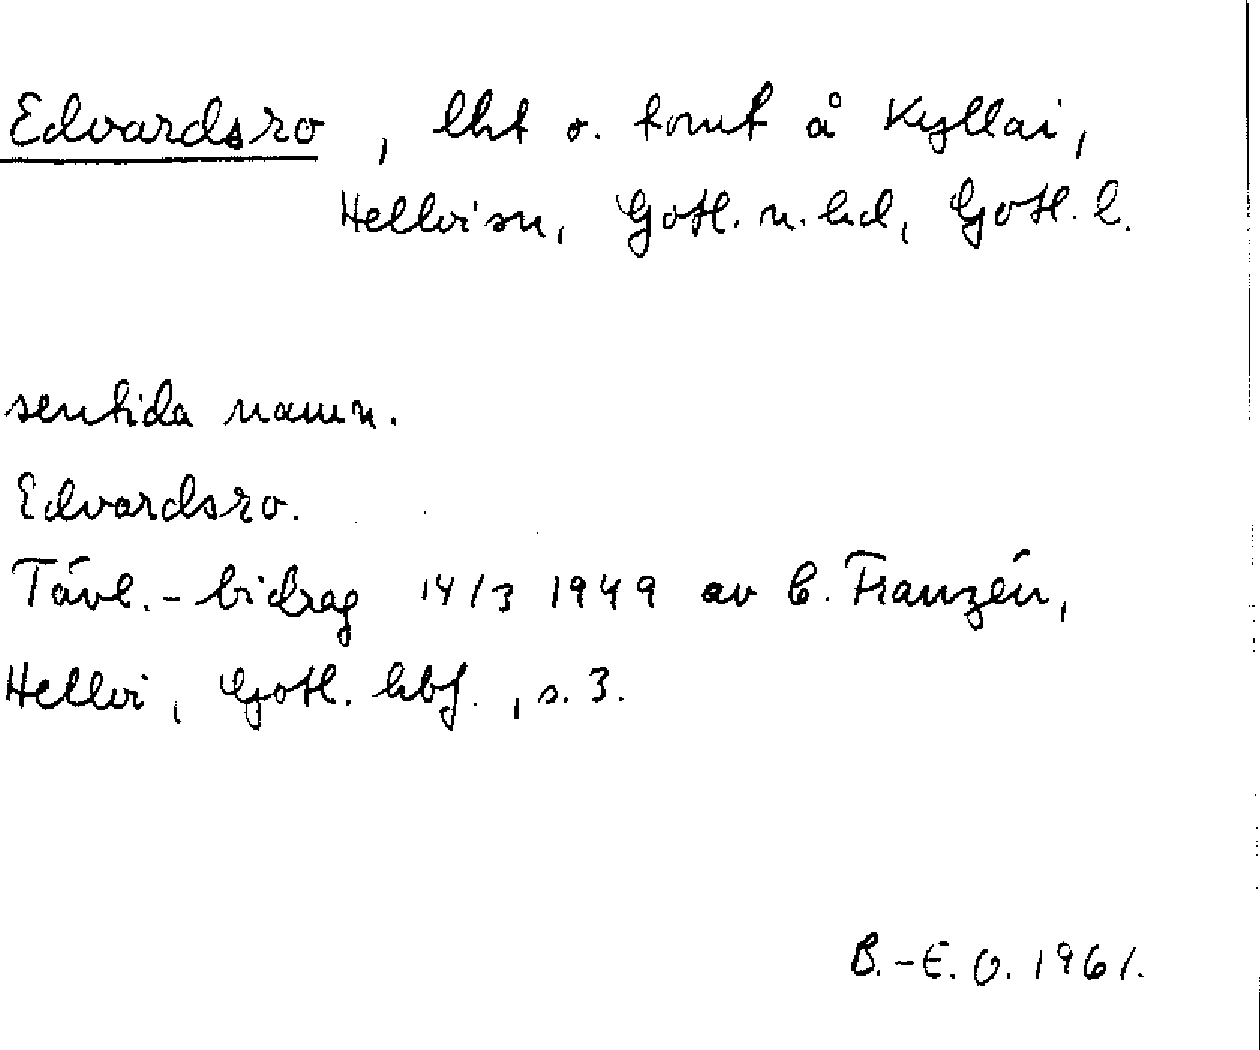 Edvardsro, lht o. tomt å Kyllai,
Hellvi sn, Gotl. n. hd, Gotl. l.
sentida namn.
Edvardsro.
Tävl.-bidrag 14/3 1949 av B. Franzén,
Hellvi, Gotl. hbf., s. 3.
B.-E. O. 1961.